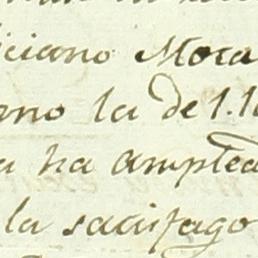 iciano Mora
rno la de 1.1
a ha amplea
la sacrifago